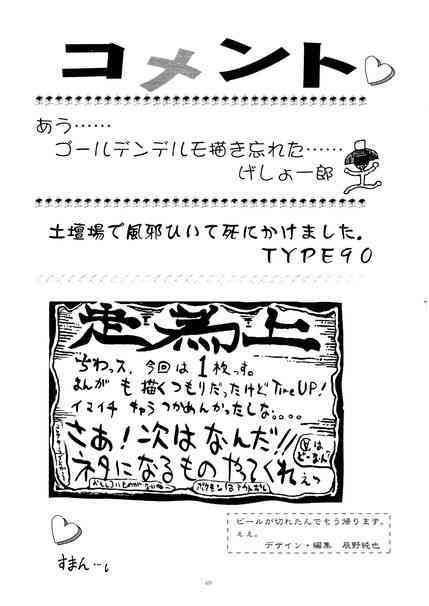 コメント
あう……
ゴールデンデルモ描き忘れた……
げしょ一郎
土壇場で風邪ひいて死にかけました。
TYPE90
走為上
ちわっス、今回は1枚っす。
まんがも描くつもりだったけどTime UP!
イマイチ キャラつかめんかったしな。。。。
さあ!次はなんだ!!
ネタになるものやってくれぇっ
ビールが切れたんでもう帰ります。
ええ。
デザイン・編集 辰野純也
すまん…